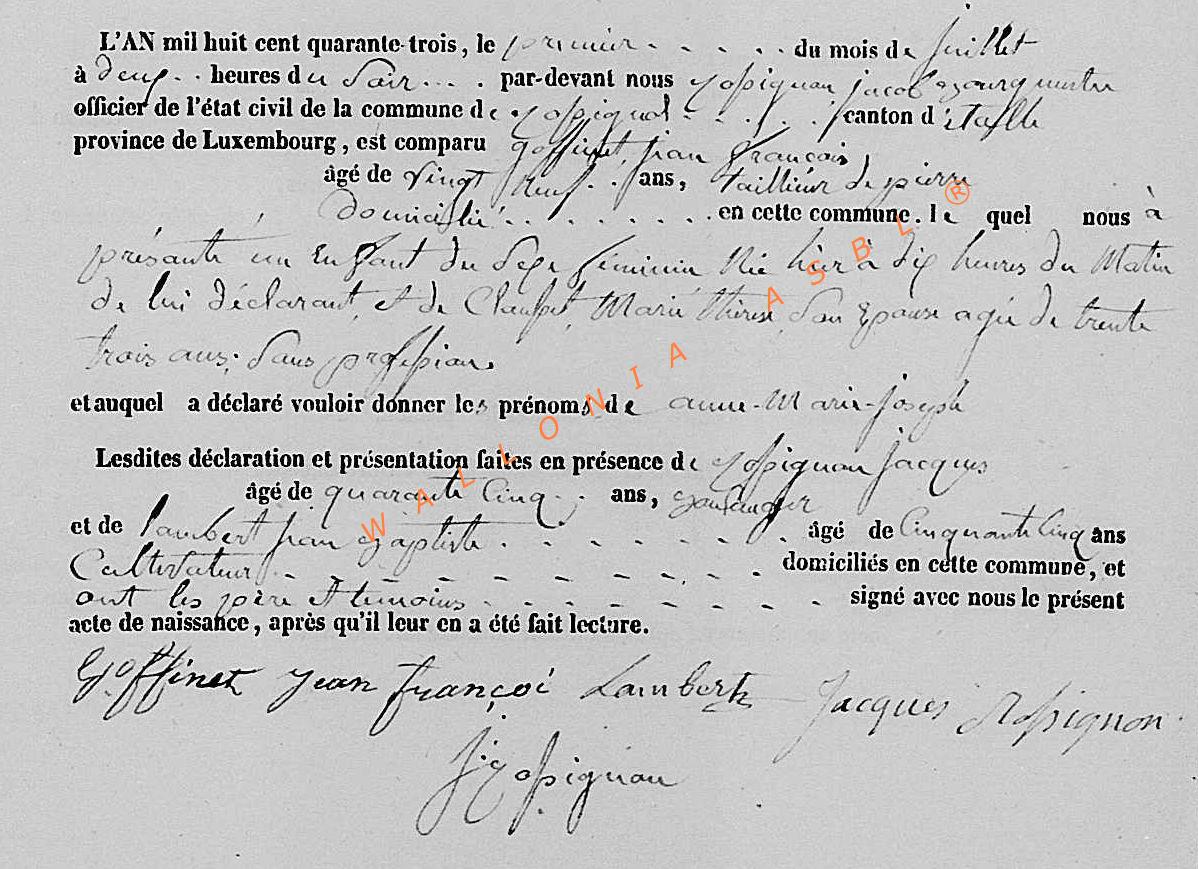 L'AN mil huit cent quarante-trois, le premier - - - - - du mois de juillet
à deux - - heures du Soir - - - par-devant nous Rossignon jacob Bourgmestre
officier de l'état civil de la commune de Rossignol - - - - canton d'étalle
province de Luxembourg, est comparu Goffinet, jean françois,
âgé de vingt neuf - - ans, tailleur de pierre
domicilié - - - - - - - en cette commune. le quel nous à
présenté un Enfant du Sexe féminin Née hier à dix heures du Matin
de lui déclarant, et de Marie Thérese, Son Epouse agée de trente
trois ans, Sans profession.
et auquel a déclaré vouloir donner les prénoms de anne-Marie-joseph
Lesdites déclaration et présentation faites en présence de Rossignon jacques
âgé de quarante Cinq - - ans, Boulanger
et de lambert jean Baptiste - - - - - - - - âgé de Cinquante Cinq ans
Cultivateur - - - - - - - - - - domiciliés en cette commune, et
ont les père et temoins - - - - - - - - signé avec nous le présent
acte de naissance, après qu'il leur en a été fait lecture.
Goffinet jean françoi Lambert Jacques Rossignon
J Rossignon
WALLONIA ASBL ®